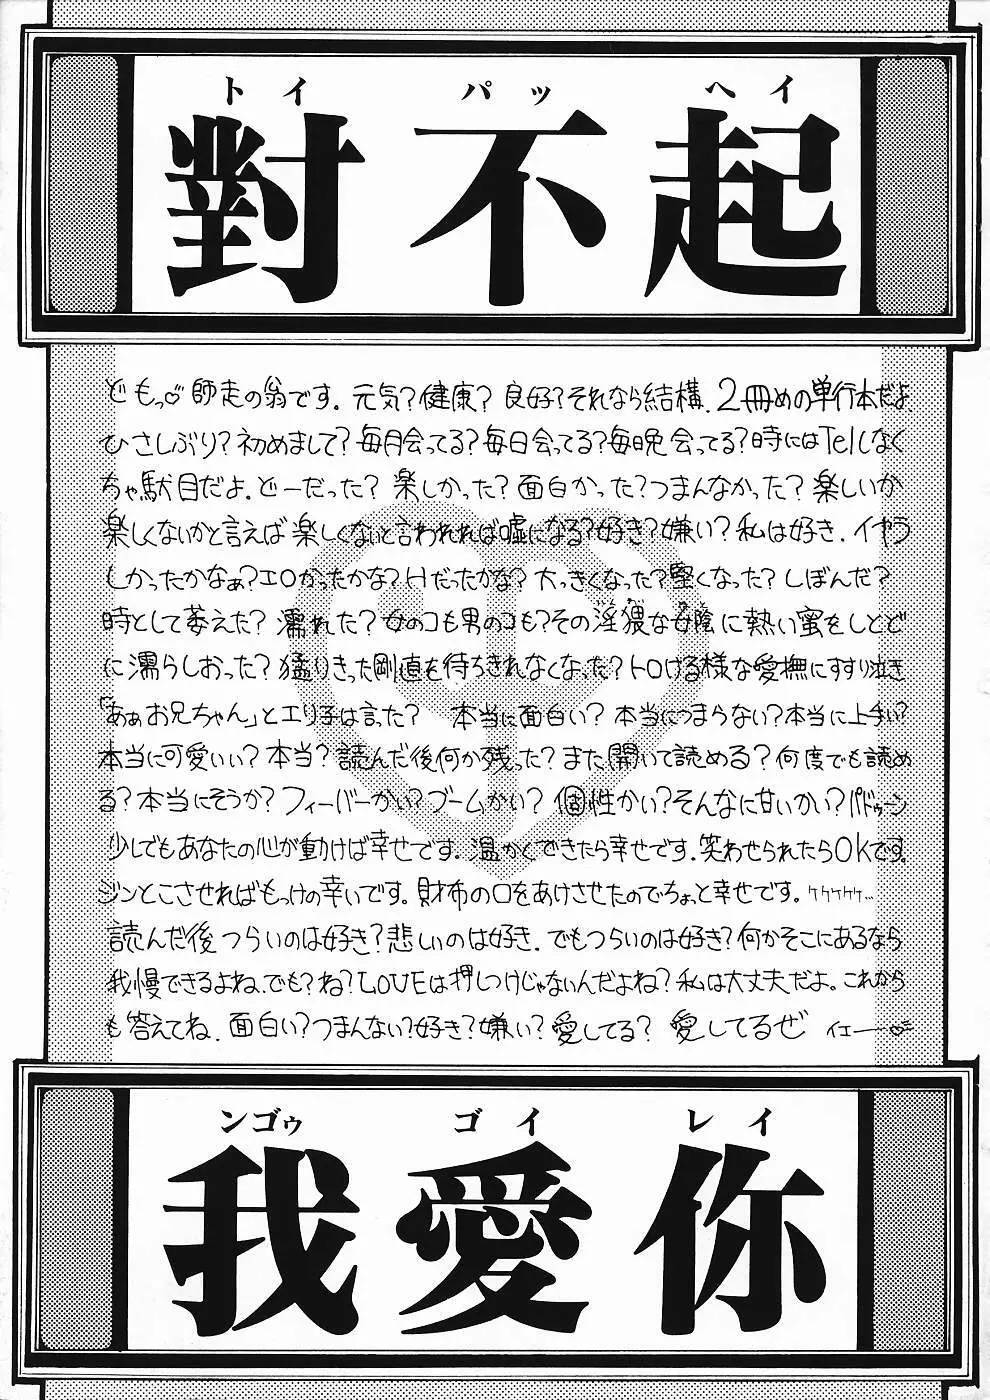 トイ パッ ヘイ
對不起
どもっ♡師走の翁です。元気?健康?良好?それなら結構、2冊めの単行本だよ
ひさしぶり?初めまして?毎月会ってる?毎日会ってる?毎晩会ってる?時にはTelしなく
ちゃ駄目だよ。どーだった?楽しかった?面白かった?つまんなかった?楽しいか
楽しくないかと言えば楽しくないと言われれば嘘になる?好き?嫌い?私は好き.イヤラ
しかったかなぁ?エロかったかな?Hだったかな?大っきくなった?堅くなった?しぼんだ?
時として萎えた?濡れた?女のコも男のコも?その淫猥な女陰に熱い蜜をしとど
に濡らしおった?猛りきった剛直を待ちきれなくなった?トロける様な愛撫にすすり泣き
「あぁお兄ちゃん」とエリ子は言った? 本当に面白い?本当につまらない?本当に上手い?
本当に可愛いい?本当?読んだ後何か残った?また開いて読める?何度でも読め
る?本当にそうか?フィーバーかい?ブームかい?個性かい?そんなに甘いかい?バドゥーン
少しでもあなたの心が動けば幸せです。温かくできたら幸せです。笑わせられたらOKです。
ジンとこさせればもっけの幸いです。財布の口をあけさせたのでちょっと幸せです。ケケケケケ…
読んだ後つらいのは好き?悲しいのは好き.でもつらいのは好き?何かそこにあるなら
我慢できるよね、でも?ね?LOVEは押しつけじゃないんだよね?私は大丈夫だよ。これから
も答えてね.面白い?つまんない?好き?嫌い?愛してる?愛してるぜ イエー♡
ンゴゥ ゴイ レイ
我愛你